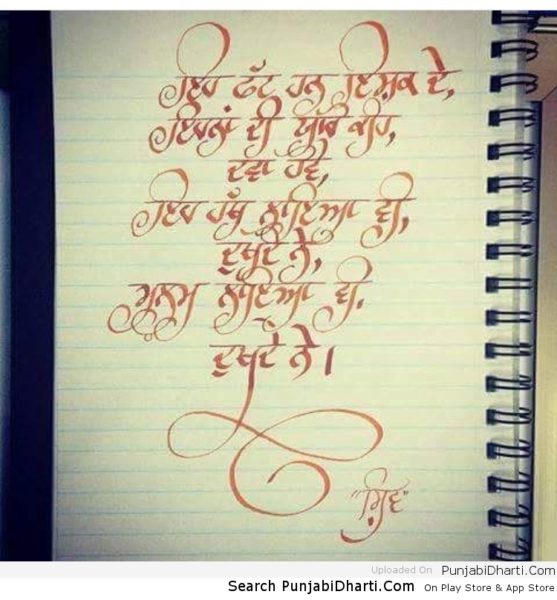 ਇਹ ਫੱਟ ਹਨ ਇਸ਼ਕ ਦੇ,
ਇਹਨਾਂ ਦੀ ਯਾਰੋ ਕੀਹ,
ਦਵਾ ਹੋਵੇ,
ਇਹ ਹੱਥ ਲਾਇਆ ਵੀ,
ਦੁਖਦੇ ਨੇ,
ਮਲ੍ਹਮ ਲਾਇਆ ਵੀ,
ਦੁਖਦੇ ਨੇ।
"ਸ਼ਿਵ"
Uploaded On PunjabiDharti.Com
Search PunjabiDharti.Com On Play Store & App Store